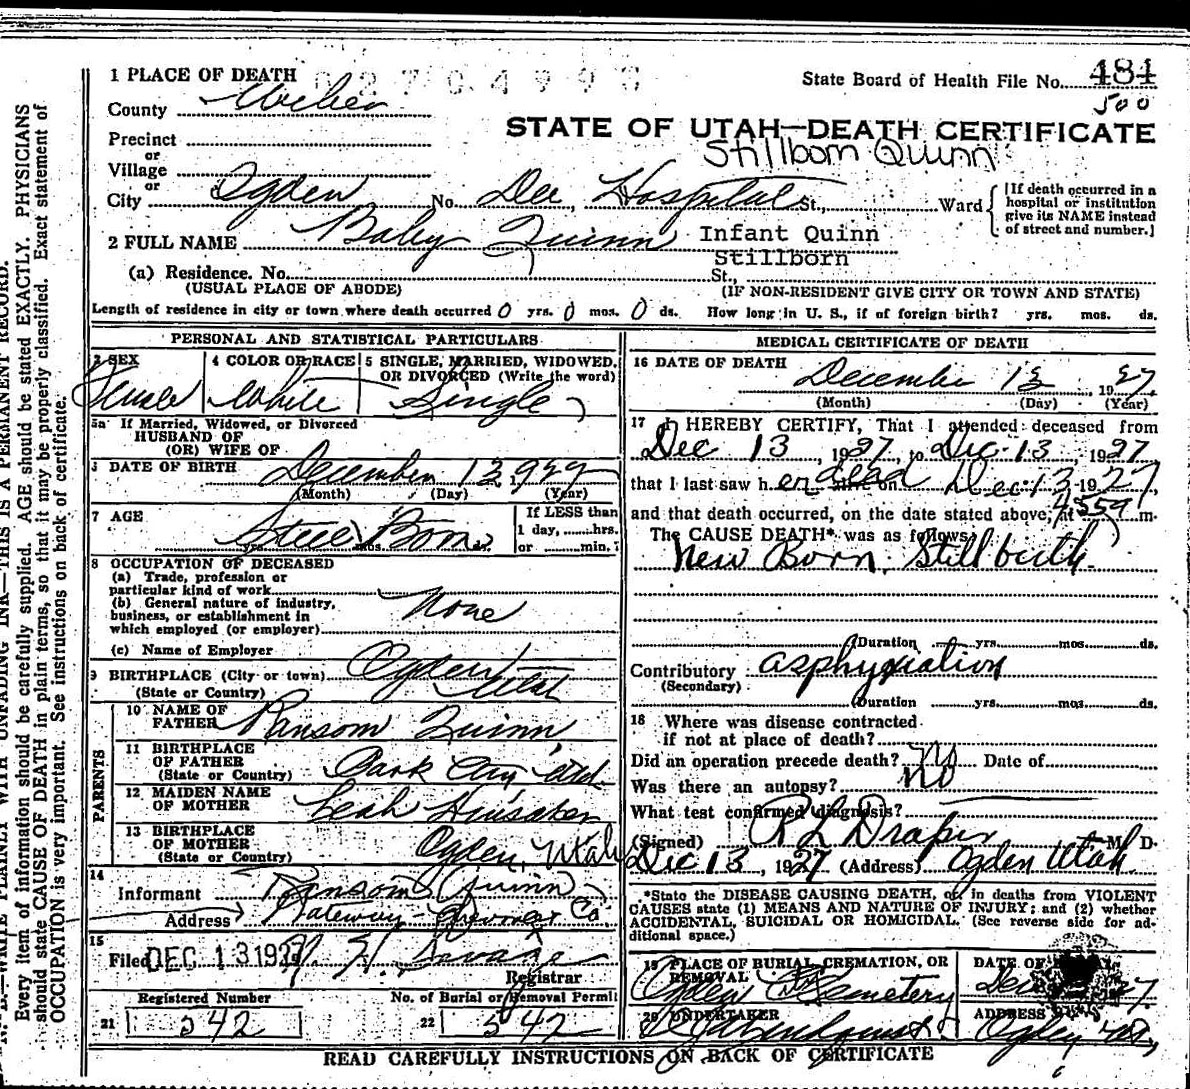 1 PLACE OF DEATH
State Board of Health File No. 484
500
County Weber
STATE OF UTAH—DEATH CERTIFICATE
Stillborn Quinn
Precinct
or
Village
or
City Ogden No. Dee Hospital St., Ward
[If death occurred in a
hospital or institution
give its NAME instead
of street and number.]
2 FULL NAME Baby Quinn Infant Quinn
Stillborn
(a) Residence. No. St.,
(USUAL PLACE OF ABODE)
(IF NON-RESIDENT GIVE CITY OR TOWN AND STATE)
Length of residence in city or town where death occurred 0 yrs. 0 mos. 0 ds. How long in U. S., if of foreign birth? yrs. mos. ds.
PERSONAL AND STATISTICAL PARTICULARS
3 SEX
4 COLOR OR RACE
5 SINGLE, MARRIED, WIDOWED,
OR DIVORCED (Write the word)
Female White Single
5a If Married, Widowed, or Divorced
HUSBAND OF
(OR) WIFE OF
6 DATE OF BIRTH December 13
(Month) (Day) (Year)
7 AGE
If LESS than
1 day, hrs.
or min.
Steel Born
yrs. mos. ds.
8 OCCUPATION OF DECEASED
(a) Trade, profession or
particular kind of work
(b) General nature of industry,
business, or establishment in
which employed (or employer)
None
(c) Name of Employer
9 BIRTHPLACE (City or town) Ogden
(State or Country) Utah
PARENTS
10 NAME OF
FATHER Ransom Quinn
11 BIRTHPLACE
OF FATHER
(State or Country) Park City Utah
12 MAIDEN NAME
OF MOTHER Leah Hunsaker
13 BIRTHPLACE
OF MOTHER
(State or Country) Ogden, Utah
14
Informant Ransom Quinn
Address Gateway Co
15
Filed DEC 13 192
Registrar
Registered Number
No. of Burial or Removal Permit
21 542
22 542
MEDICAL CERTIFICATE OF DEATH
16 DATE OF DEATH
December 13, 1927
(Month) (Day) (Year)
17 I HEREBY CERTIFY, That I attended deceased from
Dec 13, 1927, to Dec. 13, 1927
that I last saw her dead alive on Dec. 13 1927
and that death occurred, on the date stated above, at 4559 m.
The CAUSE DEATH* was as follows:
New Born. Still birth
(Duration yrs. mos. ds.
Contributory asphyxiation
(Secondary)
(Duration yrs. mos. ds.
18 Where was disease contracted
if not at place of death?
Did an operation precede death? no Date of
Was there an autopsy? no
What test confirmed diagnosis?
(Signed) R L Draper M. D.
Dec 13, 1927 (Address) Ogden Utah
*State the DISEASE CAUSING DEATH, or, in deaths from VIOLENT
CAUSES state (1) MEANS AND NATURE OF INJURY; and (2) whether
ACCIDENTAL, SUICIDAL OR HOMICIDAL. (See reverse side for ad-
ditional space.)
19 PLACE OF BURIAL, CREMATION, OR
REMOVAL
Ogden City Cemetery
DATE OF
Dec 27
20 UNDERTAKER
ADDRESS
Ogden Ut.
READ CAREFULLY INSTRUCTIONS ON BACK OF CERTIFICATE
WRITE PLAINLY WITH UNFADING INK—THIS IS A PERMANENT RECORD.
Every item of information should be carefully supplied. AGE should be stated EXACTLY. PHYSICIANS
should state CAUSE OF DEATH in plain terms, so that it may be properly classified. Exact statement of
OCCUPATION is very important. See instructions on back of certificate.